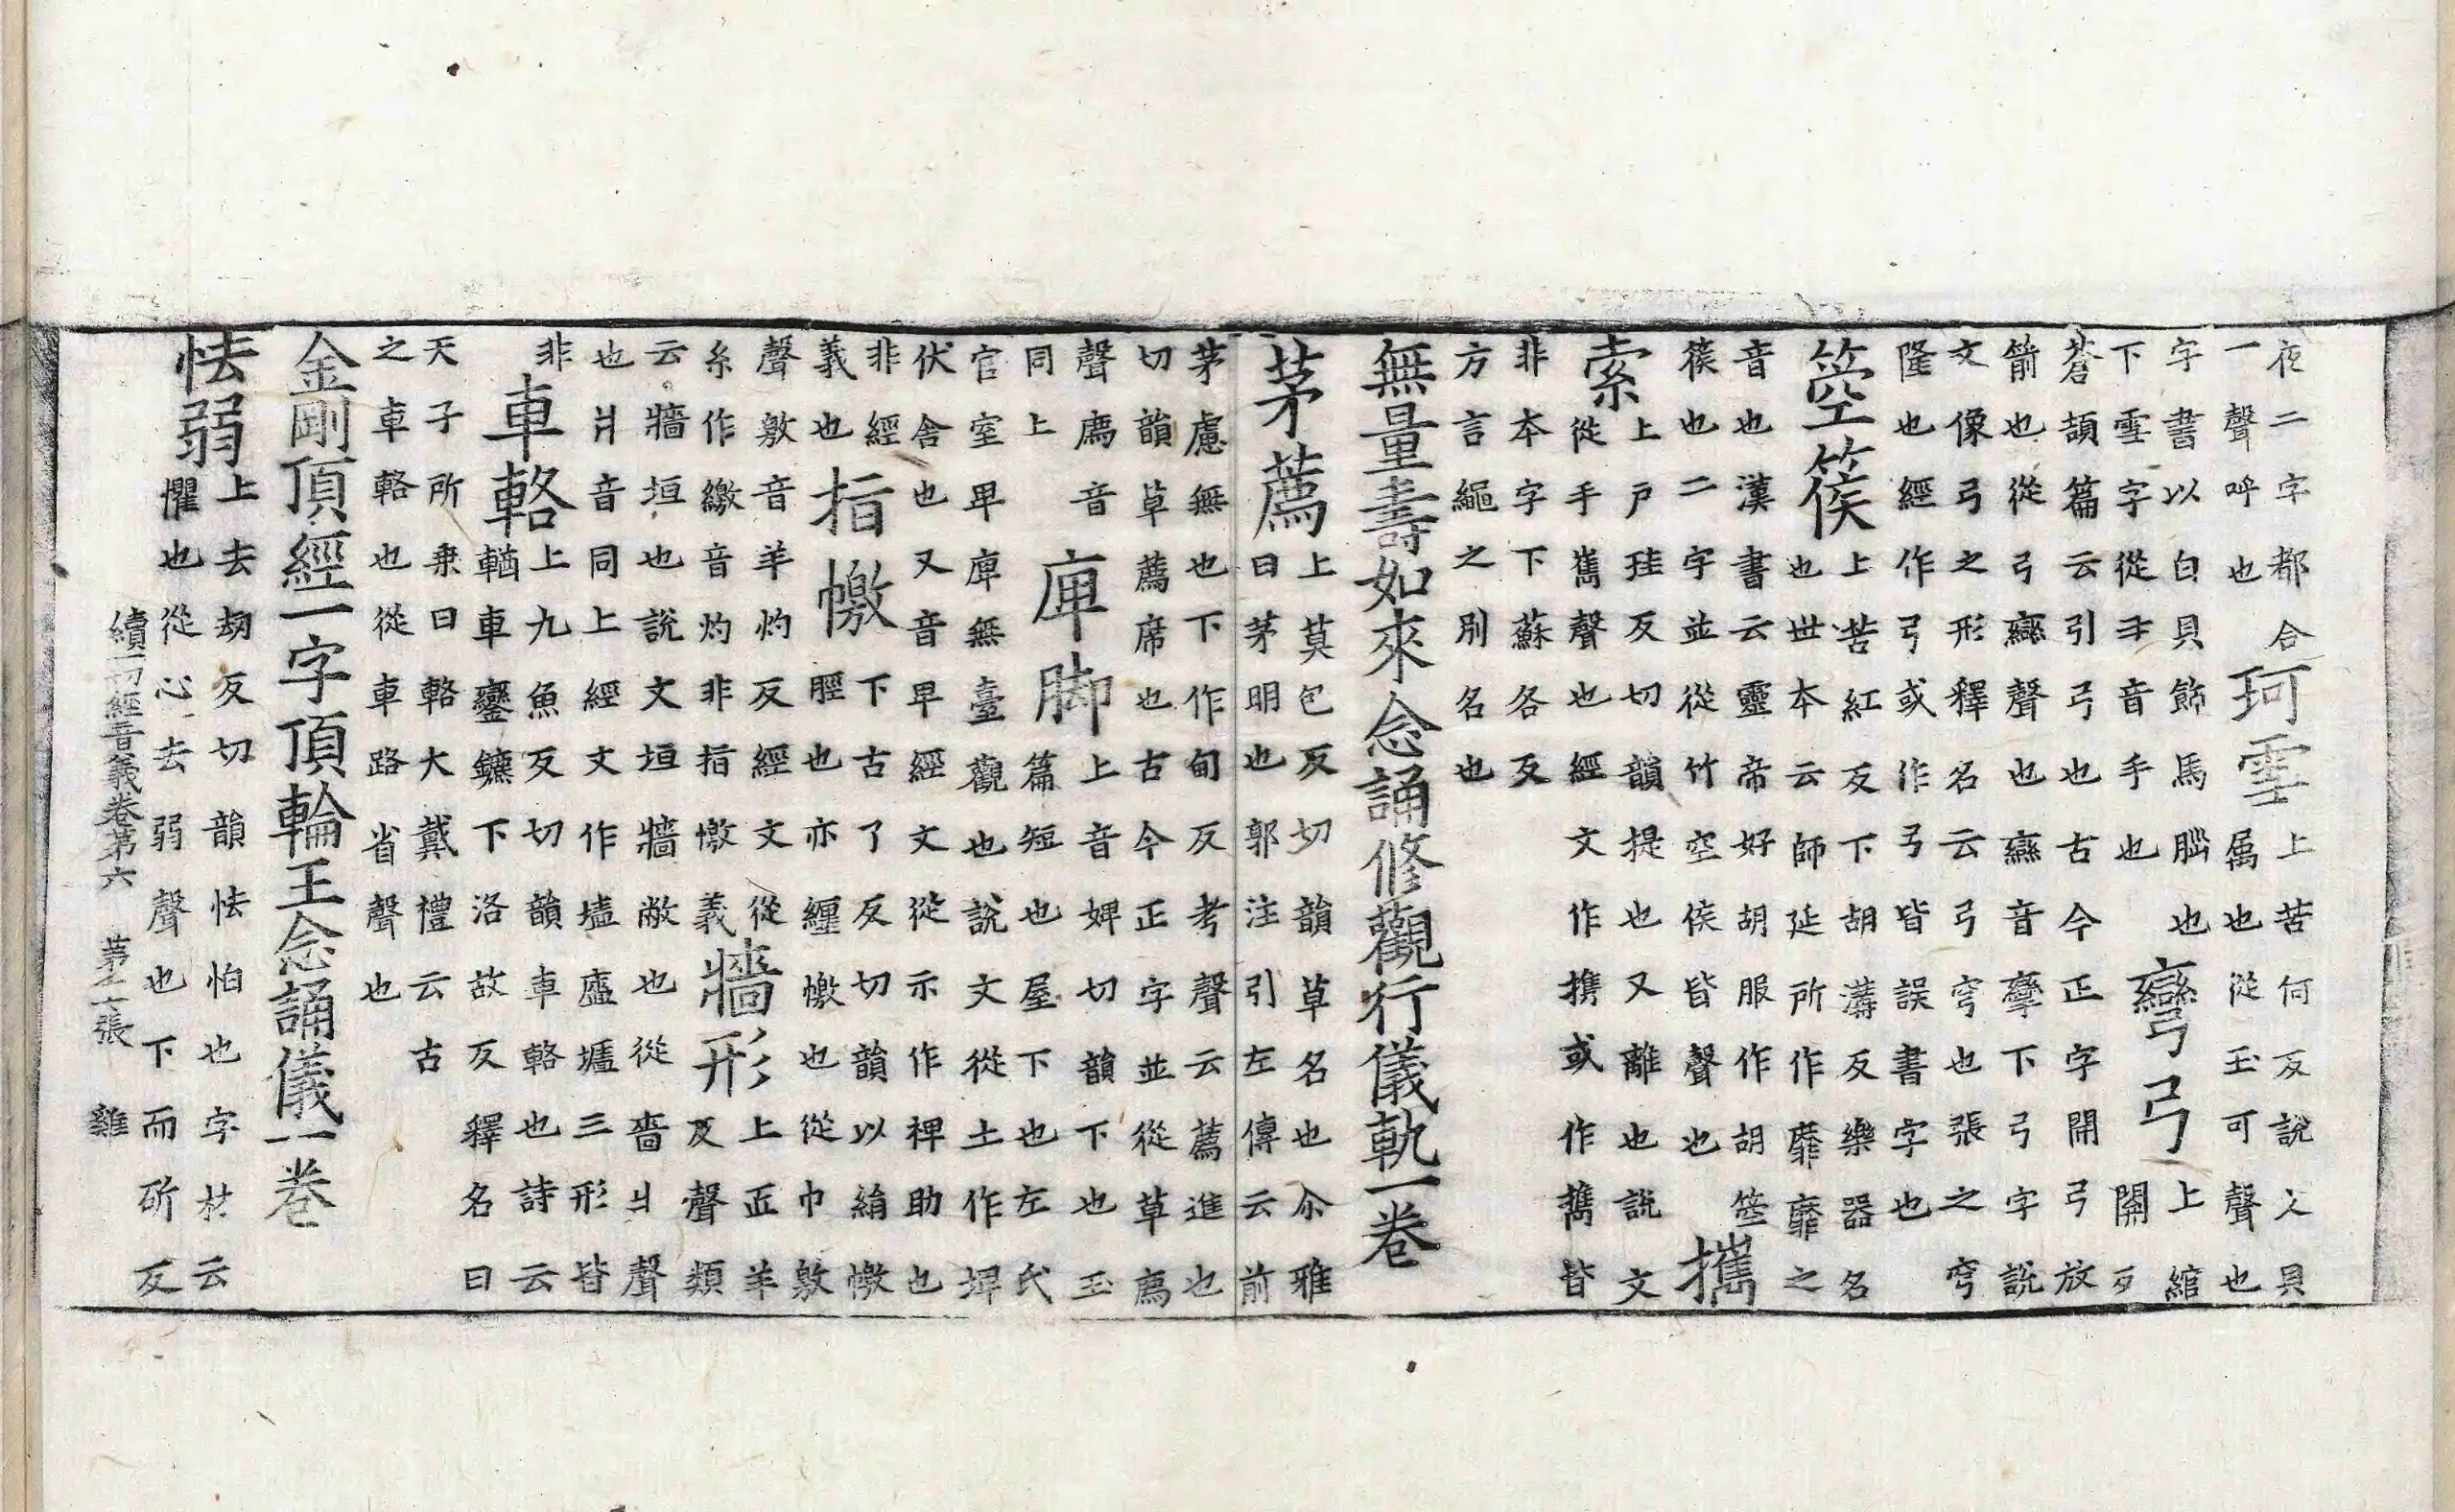 夜二字都合一聲呼也珂雪上苦何反說文貝属也從玉可聲也
字書以白貝飾馬腦也下雪字從⺕音手也彎弓上綰關反
蒼頡篇云引弓也古今正字開弓放箭也從弓䜌聲也䜌音攣下弓字說
文像弓之形釋名云弓穹也張之穹隆也經作弓或作弓皆誤書字也
箜篌上苦紅反下胡溝反樂器名也世本云師延所作靡靡之
音也漢書云靈帝好胡服作胡箜篌也二字並從竹空侯皆聲也攜
索上戶珪反切韻提也又離也說文從手巂聲也經文作携或作㩗皆
非本字下蘇各反方言繩之別名也
無量壽如來念誦修觀行儀軌一卷
茅薦上莫包反切韻草名也尒雅曰茅明也郭注引左傳云前
茅慮無也下作甸反考聲云薦進也切韻草薦席也古今正字並從草廌
聲廌音同上庳脚上音婢切韻下也玉篇短也屋下也左氏
官室卑庳無臺觀也說文從土作埤伏舍也又音卑經文從示作裨助也
非經義也指幑下古了反切韻以絹幑脛也亦纏幑也從巾敫
聲敫音羊灼反經文從糸作繳音灼非指幑義牆形上疋羊反聲類
云牆垣也說文垣牆敝也從嗇爿聲也爿音同上經文作墟廬壚三形皆
非車輅上九魚反切韻車輅也詩云輶車鑾鑣下洛故反釋名曰
天子所乗曰輅大戴禮云古之車輅也從車路省聲也
金剛頂經一字頂輪王念誦儀一卷
怯弱上去刼反切韻怯怕也字林云懼也從心去弱聲也下而斫反
續一切經音義卷第六 第十六張 雞